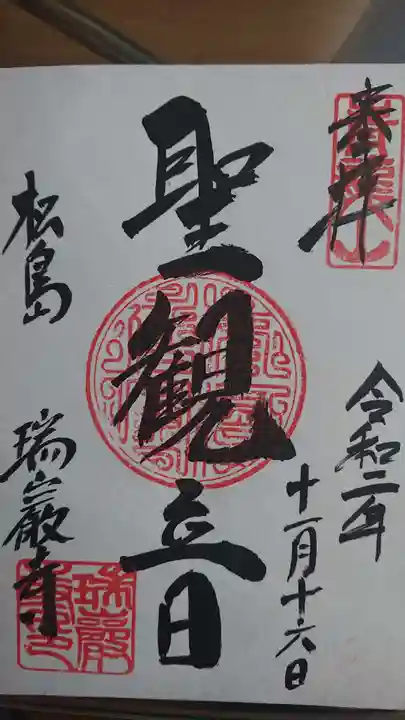 奉拝
令和二年
十一月十六日
聖観音
松島
瑞巌寺
瑞巌